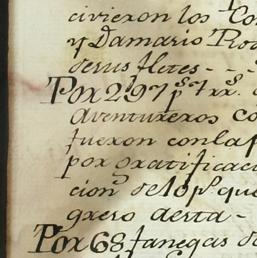 civieron los Con
y Damario Rod
de sus fletes - - -
Por 297 p.s 7 rr.s
Aventureros co
fueron con la f
por gratificaci
cion de 10 p.s que
grero desta -
Por 68 fanegas de